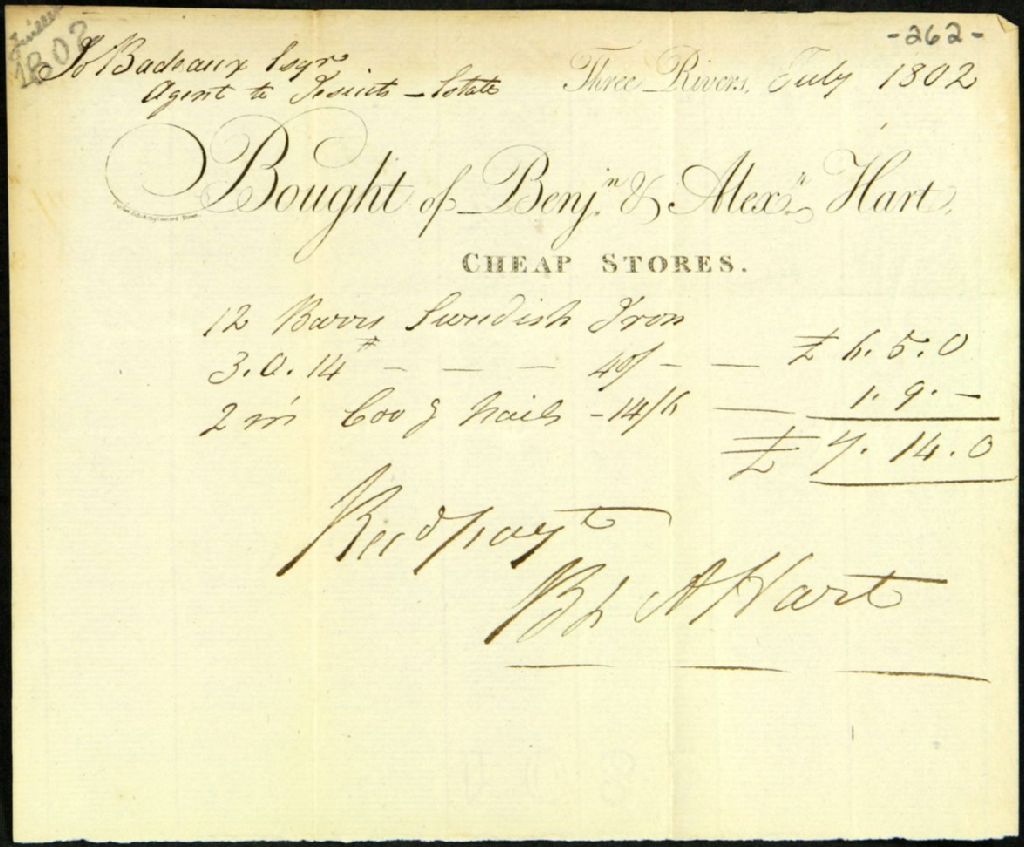 Juillet
1802
-262-
Jo Badeaux Esqre
Agent to Jesuits - Estate
Three Rivers, July 1802
Bought of Benjn. & Alexr. Hart.
CHEAP STORES.
12 Barrs Swedish Iron
3.0.14# - - - 40/ - - £ 6. 5. 0
2 m's Nails - 14/6 — 1. 9. -
£ 7. 14. 0
Recd payt
B & A Hart